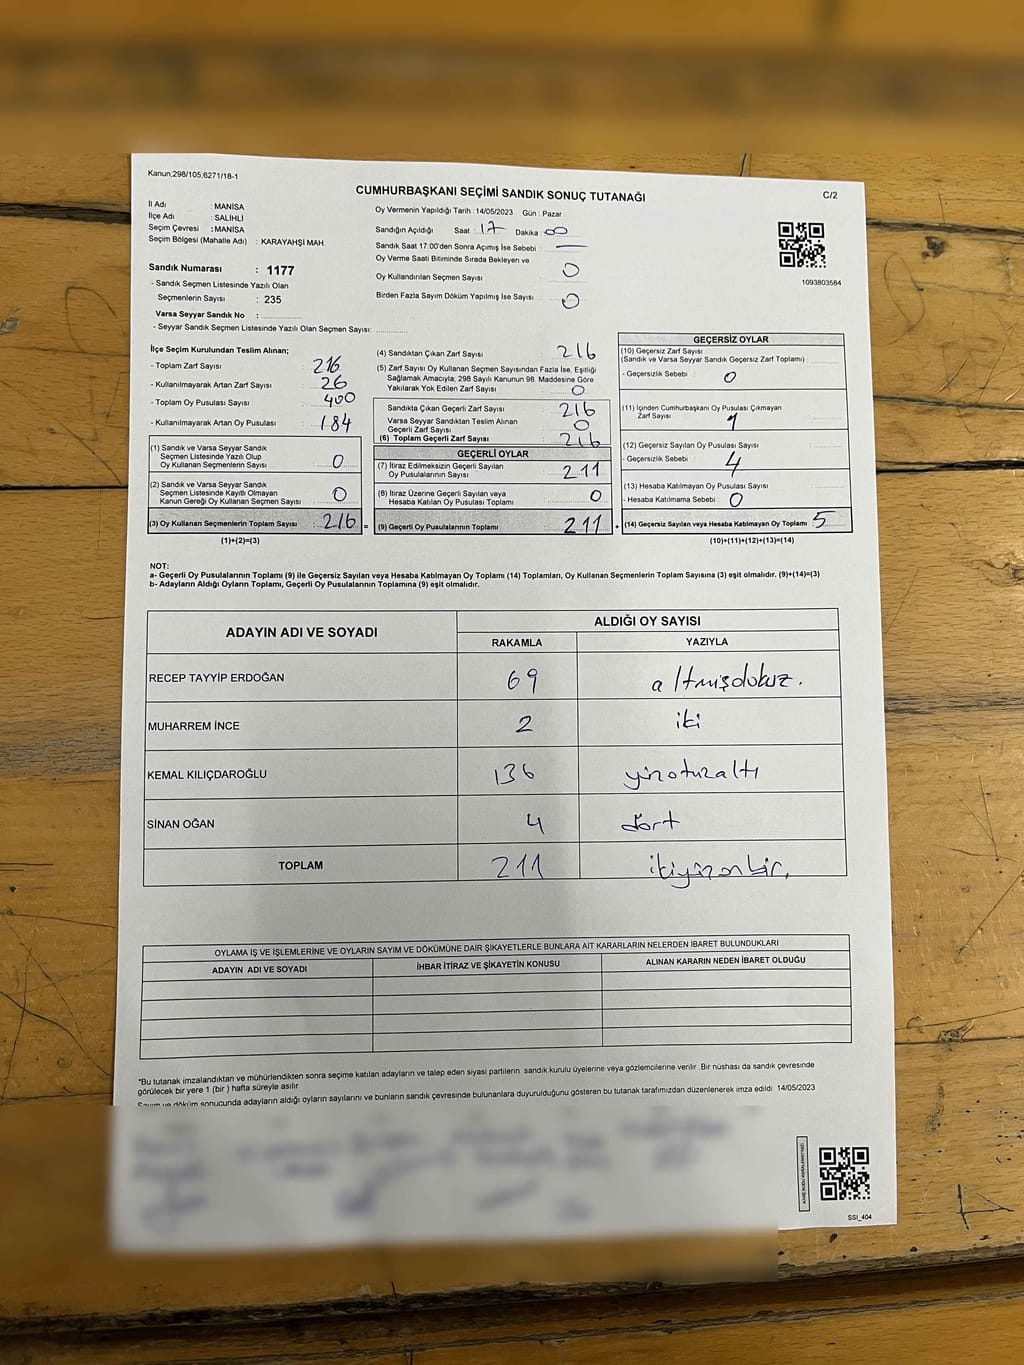 Kanun;298/105,6271/18-1
CUMHURBAŞKANI SEÇİMİ SANDIK SONUÇ TUTANAĞI
C/2
İl Adı : MANİSA
İlçe Adı : SALİHLİ
Seçim Çevresi : MANİSA
Seçim Bölgesi (Mahalle Adı) : KARAYAHŞİ MAH.
Sandık Numarası : 1177
- Sandık Seçmen Listesinde Yazılı Olan
Seçmenlerin Sayısı : 235
Varsa Seyyar Sandık No :
- Seyyar Sandık Seçmen Listesinde Yazılı Olan Seçmen Sayısı:
Oy Vermenin Yapıldığı Tarih : 14/05/2023 Gün : Pazar
Sandığın Açıldığı Saat : 17 Dakika : 00
Sandık Saat 17:00'den Sonra Açımış İse Sebebi : —
Oy Verme Saati Bitiminde Sırada Bekleyen ve
Oy Kullandırılan Seçmen Sayısı 0
Birden Fazla Sayım Döküm Yapılmış İse Sayısı 0
1093803584
İlçe Seçim Kurulundan Teslim Alınan;
- Toplam Zarf Sayısı : 216
- Kullanılmayarak Artan Zarf Sayısı : 26
- Toplam Oy Pusulası Sayısı : 400
- Kullanılmayarak Artan Oy Pusulası : 184
(1) Sandık ve Varsa Seyyar Sandık
Seçmen Listesinde Yazılı Olup
Oy Kullanan Seçmenlerin Sayısı : 0
(2) Sandık ve Varsa Seyyar Sandık
Seçmen Listesinde Kayıtlı Olmayan
Kanun Gereği Oy Kullanan Seçmen Sayısı : 0
(3) Oy Kullanan Seçmenlerin Toplam Sayısı : 216 =
(1)+(2)=(3)
(4) Sandıktan Çıkan Zarf Sayısı 216
(5) Zarf Sayısı Oy Kullanan Seçmen Sayısından Fazla İse, Eşitliği
Sağlamak Amacıyla; 298 Sayılı Kanunun 98. Maddesine Göre
Yakılarak Yok Edilen Zarf Sayısı 0
Sandıkta Çıkan Geçerli Zarf Sayısı 216
Varsa Seyyar Sandıktan Teslim Alınan
Geçerli Zarf Sayısı 0
(6) Toplam Geçerli Zarf Sayısı 216
GEÇERLİ OYLAR
(7) İtiraz Edilmeksizin Geçerli Sayılan
Oy Pusulalarının Sayısı 211
(8) İtiraz Üzerine Geçerli Sayılan veya
Hesaba Katılan Oy Pusulası Toplamı 0
(9) Geçerli Oy Pusulalarının Toplamı 211 +
GEÇERSİZ OYLAR
(10) Geçersiz Zarf Sayısı
(Sandık ve Varsa Seyyar Sandık Geçersiz Zarf Toplamı)
- Geçersizlik Sebebi : 0
(11) İçinden Cumhurbaşkanı Oy Pusulası Çıkmayan
Zarf Sayısı 1
(12) Geçersiz Sayılan Oy Pusulası Sayısı
- Geçersizlik Sebebi : 4
(13) Hesaba Katılmayan Oy Pusulası Sayısı
- Hesaba Katılmama Sebebi : 0
(14) Geçersiz Sayılan veya Hesaba Katılmayan Oy Toplamı 5
(10)+(11)+(12)+(13)=(14)
NOT:
a- Geçerli Oy Pusulalarının Toplamı (9) ile Geçersiz Sayılan veya Hesaba Katılmayan Oy Toplamı (14) Toplamları, Oy Kullanan Seçmenlerin Toplam Sayısına (3) eşit olmalıdır. (9)+(14)=(3)
b- Adayların Aldığı Oyların Toplamı, Geçerli Oy Pusulalarının Toplamına (9) eşit olmalıdır.
ADAYIN ADI VE SOYADI
ALDIĞI OY SAYISI
RAKAMLA YAZIYLA
RECEP TAYYİP ERDOĞAN 69 altmışdokuz.
MUHARREM İNCE 2 iki
KEMAL KILIÇDAROĞLU 136 yüzotuzaltı
SİNAN OĞAN 4 dört
TOPLAM 211 ikiyüzonbir.
OYLAMA İŞ VE İŞLEMLERİNE VE OYLARIN SAYIM VE DÖKÜMÜNE DAİR ŞİKAYETLERLE BUNLARA AİT KARARLARIN NELERDEN İBARET BULUNDUKLARI
ADAYIN ADI VE SOYADI İHBAR İTİRAZ VE ŞİKAYETİN KONUSU ALINAN KARARIN NEDEN İBARET OLDUĞU
*Bu tutanak imzalandıktan ve mühürlendikten sonra seçime katılan adayların ve talep eden siyasi partilerin sandık kurulu üyelerine veya gözlemcilerine verilir. Bir nüshası da sandık çevresinde
görülecek bir yere 1 (bir ) hafta süreyle asılır
Sayım ve döküm sonucunda adayların aldığı oyların sayılarını ve bunların sandık çevresinde bulunanlara duyurulduğunu gösteren bu tutanak tarafımızdan düzenlenerek imza edildi. 14/05/2023
SSI_404